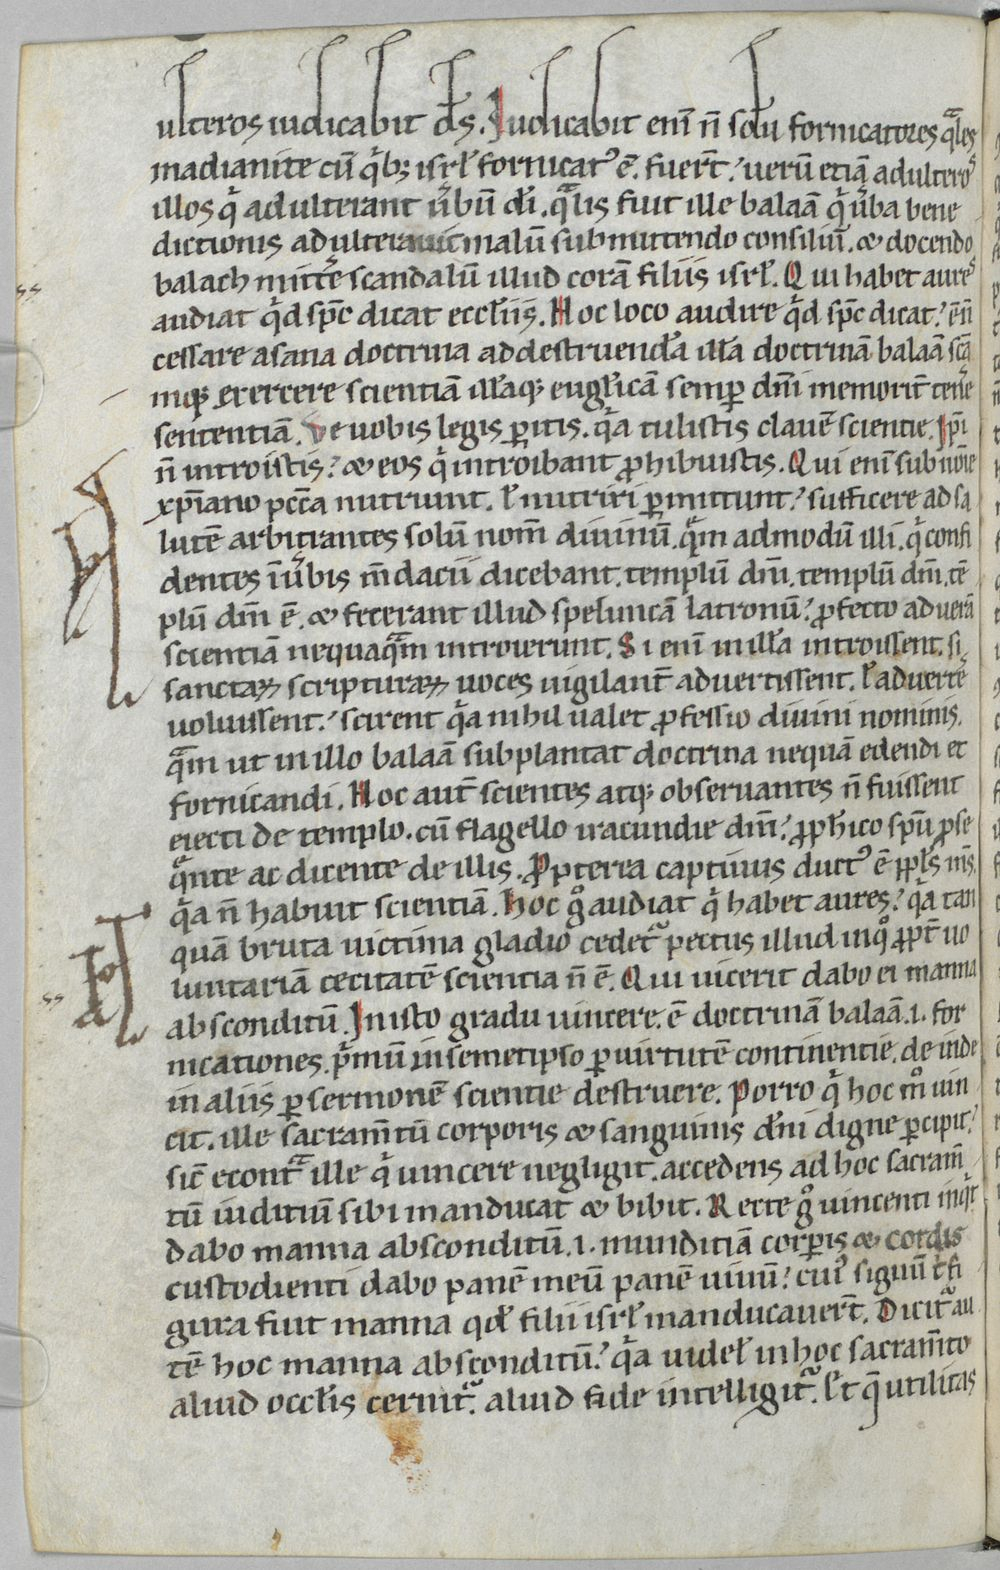 ulteros iudicabit d̅s. Iudicabit eni̅ n̅ solu̅ fornicatores q̅les
madianite cu̅ qͥb; isrl̅ fornicatꝰ e̅. fuer̅t? ueru̅ etia̅ adulteros
illos qͥ adulterant u̅bu̅ di̅. qᷓlis fuit ille balaa̅ qͥ u̅ba bene
dictionis adulterauit malu̅ submittendo consiliu̅. & docendo
balach mitte̅ scandalu̅ illud cora̅ filiis isrl̅. Qui habet aures
audiat qͥd sp̅c dicat eccl̅iis. Hoc loco audire qͥd sp̅c dicat? e̅ n̅
cessare a sana doctrina ad destruenda̅ illa̅ doctrina̅ balaa̅ sc̅a
mq; exercere scientia̅ illa̅q; eug̅lica̅ semp̲ dn̅i memorit̅ tene̅
sententia̅. Ve uobis legis p̲itis. qͥa tulistis claue̅ scientie. Ip̅i
n̅ introistis? & eos qͥ introibant ꝓhibuistis. Qui eni̅ sub no̅ie
xp̅iano pcc̅a nutriunt. l̅ nutriri p̲mittunt? sufficere ad sa
lute̅ arbitrantes solu̅ nom̅ diuinu̅. qᷓm admodu̅ illi. qͥ confi
dentes i̅ u̅bis m̅dacii dicebant. templu̅ dn̅i. templu̅ dn̅i. te̅
plu̅ dn̅i e̅. & fecerant illud spelunca̅ latronu̅? ꝓfecto ad uera̅
scientia̅ nequaqᷓm introierunt. Si eni̅ in illa̅ introissent. si
sanctaꝝ scripturaꝝ uoces uigilant̅ aduertissent. l̅ aduerte̅
uoluissent? scirent qͥa nihil ualet ꝓfessio diuini nominis.
qᷓm ut in illo balaa̅ subplantat doctrina nequa̅ edendi et
fornicandi. Hoc aut̅ scientes atq; obseruantes n̅ fuissent
eiecti de templo. cu̅ flagello iracundie dn̅i? ꝓph̅ico sp̅u ꝓse
qᷓnte ac dicente de illis. Ꝓpterea captiuus ductꝰ e̅ pp̅ls m̅s.
qͥa n̅ habuit scientia̅. Hoc gͦ audiat qͥ habet aures? qͥa tan
qua̅ bruta uictima gladio cedet᷑ pectus illud inqͦ ꝓpt̅ uo
luntaria̅ cecitate̅ scientia n̅ e̅. Qui uicerit dabo ei manna
absconditu̅. In isto gradu uincere. e̅ doctrina̅ balaa̅ .i. for
nicationes. pͥmu̅ in semetipso p̲ uirtute̅ continentie. de inde
in aliis p̲ sermone̅ scientie destruere. Porro qͥ hoc mͦ uin
cit. ille sacram̅tu̅ corporis & sanguinis dn̅i digne p̲cipit?
sic̅ econtᷓ ille qͥ uincere negligit. accedens ad hoc sacram̅
tu̅ iuditiu̅ sibi manducat & bibit. Recte gͦ uincenti inqͥt
dabo manna absconditu̅ .i. munditia̅ corp̲is & cordis
custodienti dabo pane̅ meu̅ pane̅ uiuu̅? cuiꝰ signu̅ & fi
gura fuit manna qd̅ filii isrl̅ manducauer̅t. Dicit᷑ au
te̅ hoc manna absconditu̅? qͥa uidel̅ in hoc sacram̅to
aliud occl̅is cernit᷑. aliud fide intelligit᷑. Et q̅ utilitas